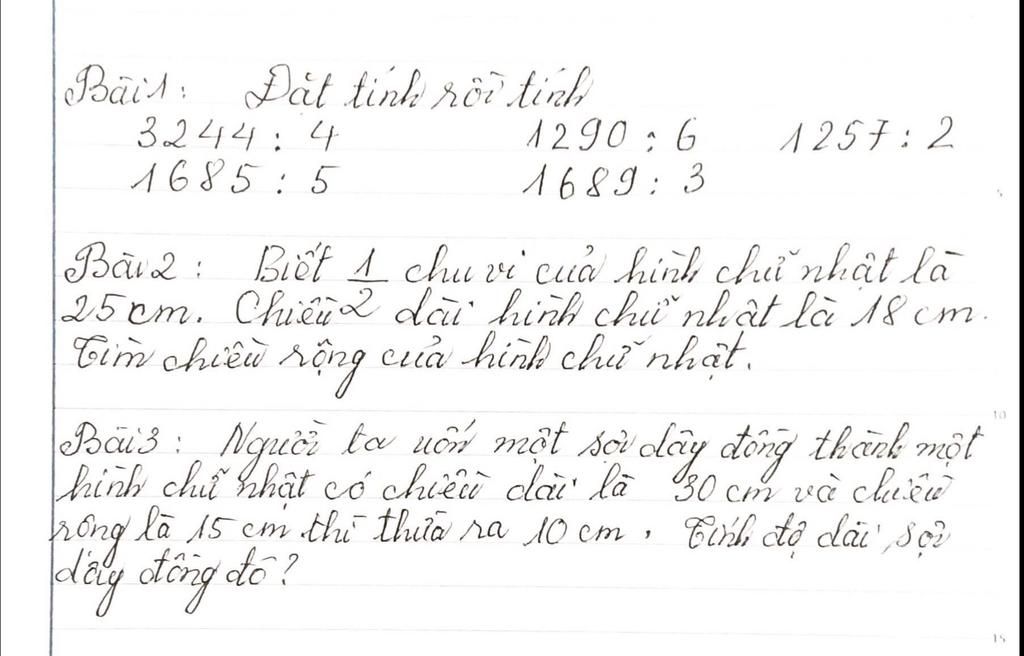 Bài 1: Đặt tính rồi tính
3244 : 4 1290 : 6 1257 : 2
1685 : 5 1689 : 3
Bài 2: Biết 1/2 chu vi của hình chữ nhật là
25 cm. Chiều dài hình chữ nhật là 18 cm.
Tìm chiều rộng của hình chữ nhật.
Bài 3: Người ta uốn một sợi dây đồng thành một
hình chữ nhật có chiều dài là 30 cm và chiều
rộng là 15 cm thì thừa ra 10 cm. Tính độ dài sợi
dây đồng đó?
10
15